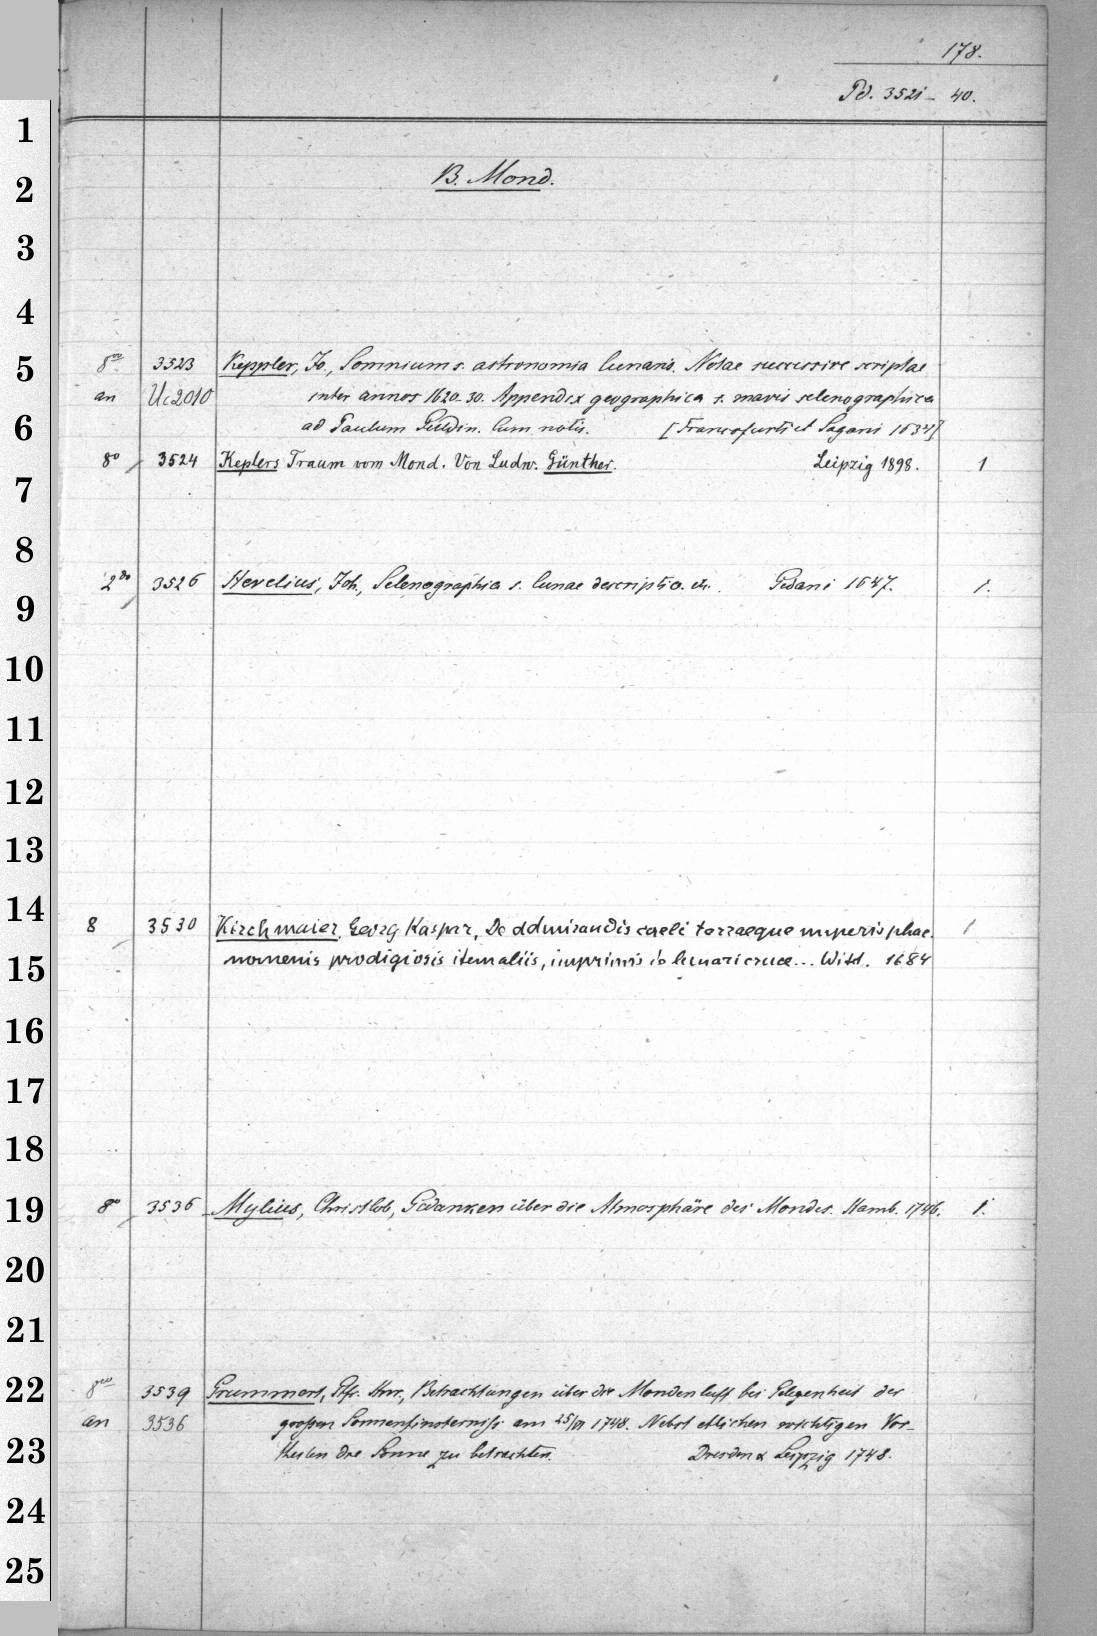 178.
Pd. 3521-40.
1
2 B. Mond.
3
4
5 8vo 3523 Keppler, Jo., Somnium s. astronomia lunaris. Notae successive scriptae
an Uc2010 inter annos 1620.30. Appendix geographica s. mavis selenographica
6 ad Paulum Guldin. cum notis. [Francofurti et Sagani 1634]
8o 3524 Keplers Traum vom Mond. Von Ludw. Günther. Leipzig 1898. 1
7
8
2do 3526 Hevelius, Joh., Selenographia s. lunae descriptio. etc. Gedani 1647. 1.
9
10
11
12
13
14 8 3530 Kirchmaier, Georg Kaspar, De admirandis caeli terraeque nuperis phae- 1
15 nomenis prodigiosis itemaliis, imprimis de lunari cruce... Witt. 1684
16
17
18
19 8vo 3536 Mylius, Christlob, Gedanken über die Atmosphäre des Mondes. Hamb. 1746. 1.
20
21
22 8vo 3539 Grummert, Gfr. Hnr., Betrachtungen über die Mondenluft bei Gelegenheit der
an 3536 großen Sonnenfinsterniß am 25/VII 1748. Nebst etlichen wichtigen Vor-
23 theilen die Sonne zu betrachten. Dresden & Leipzig 1748.
24
25